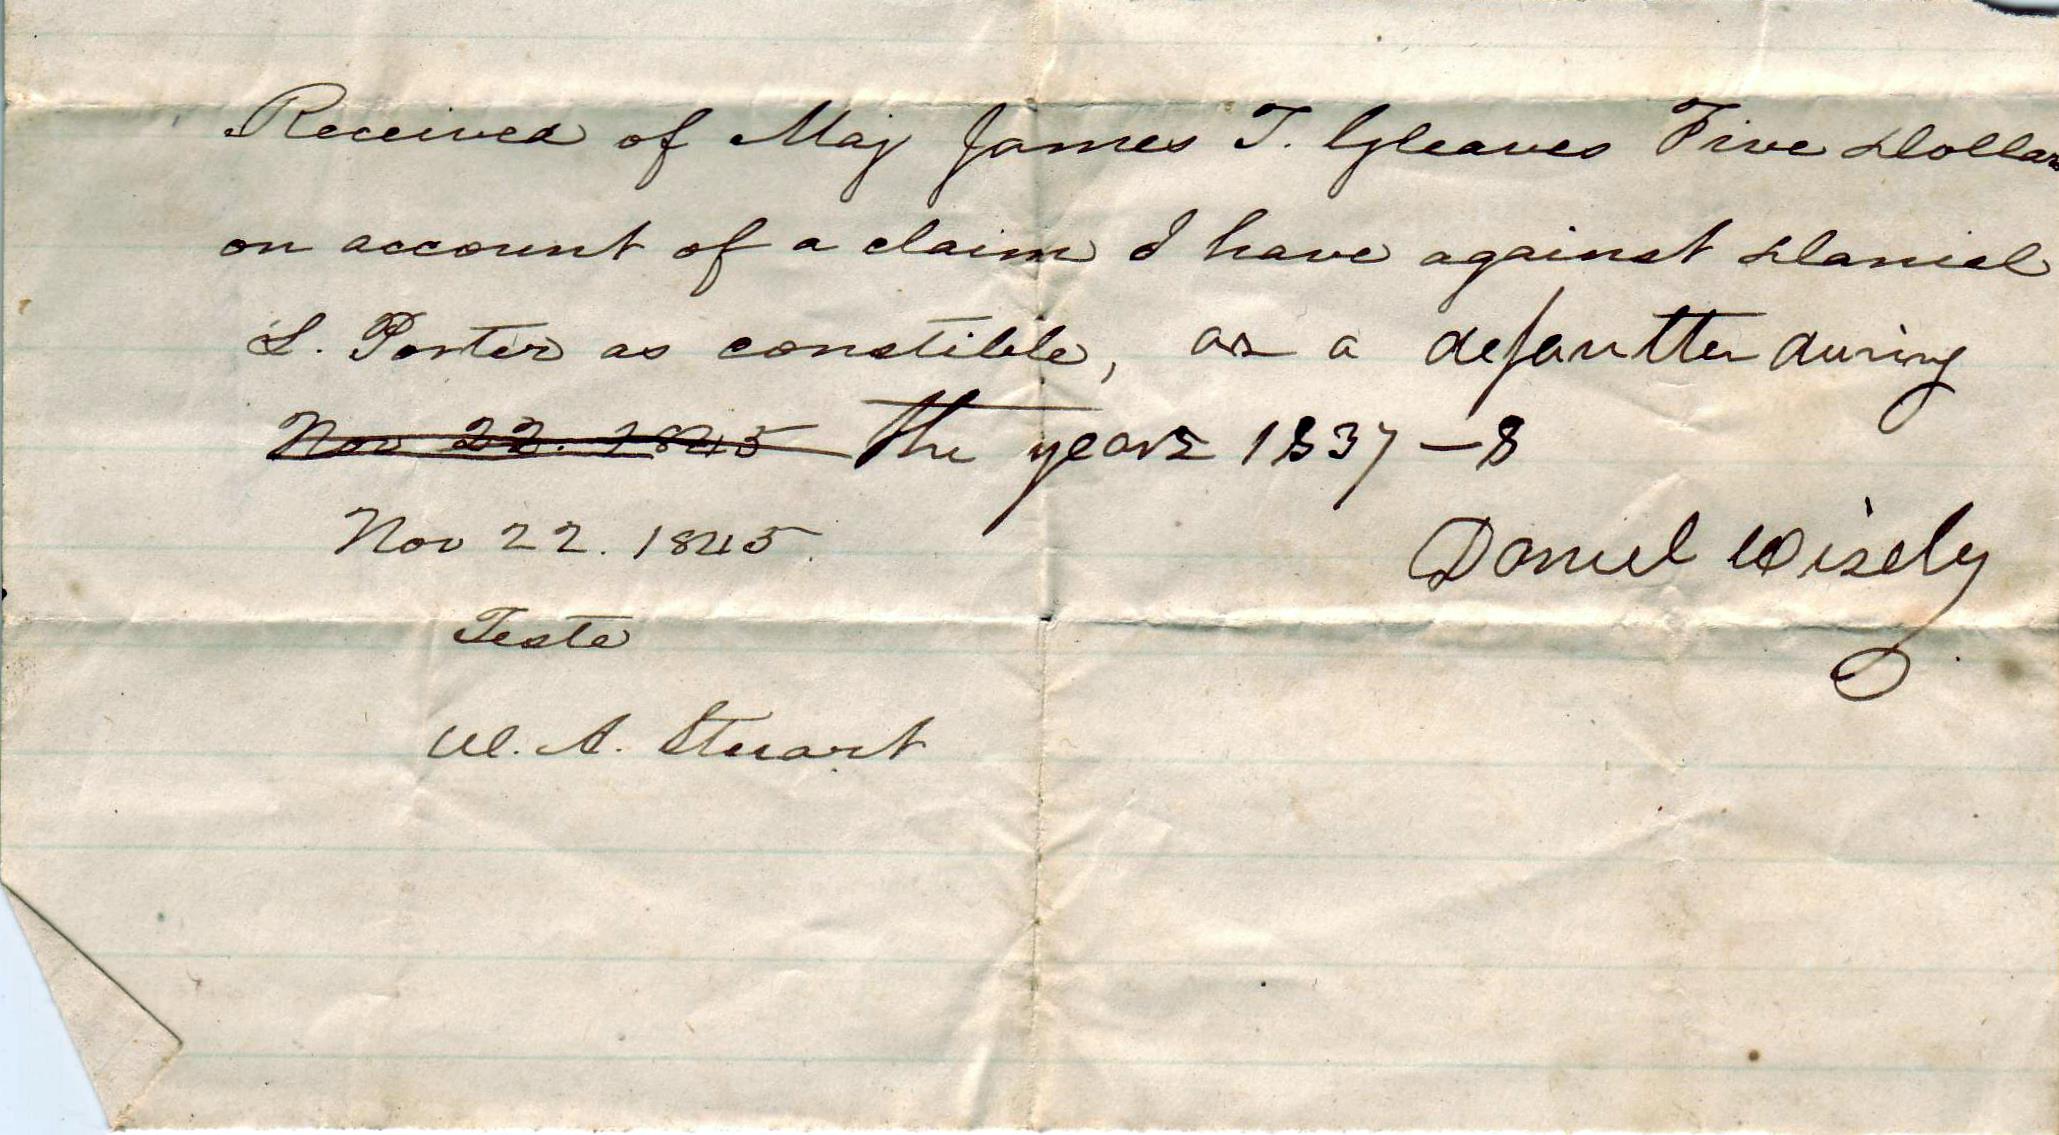 Received of Maj James T. Gleaves Five Dollars
on account of a claim I have against Daniel
S. Porter as constible, as a defautter during
Nov 22. 1845 the years 1837-8
Nov 22. 1845.
Daniel Wisely
Teste
W. A. Stuart